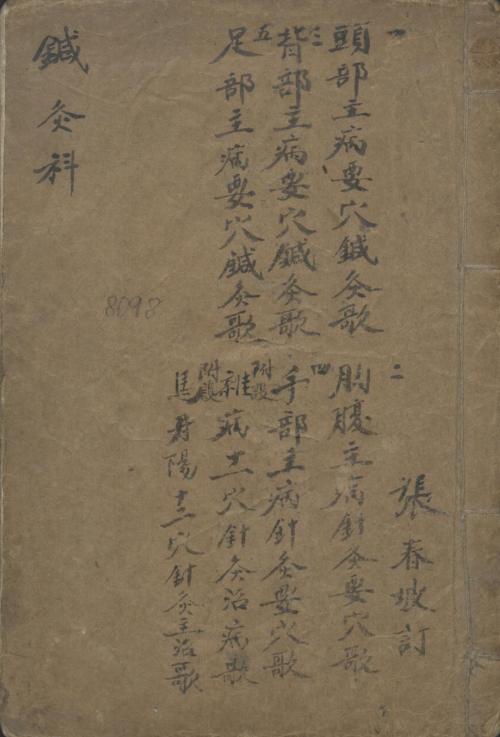 一 頭部主病要穴鍼灸歌
二 胸腹主病針灸要穴歌
三 背部主病要穴鍼灸歌
四 手部主病針灸要穴歌
五 足部主病要穴鍼灸歌
附設 雜病十一穴針灸治病歌
附設 馬丹陽十二穴針灸主治歌
張春坡訂
鍼灸科
8098